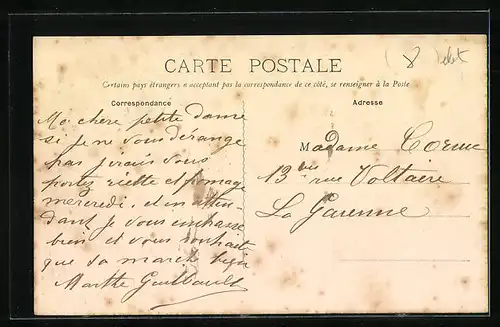 CARTE POSTALE
Certains pays étrangers n'acceptant pas la correspondance de ce côté, se renseigner à la Poste
Correspondance
Ma chere petite dame
si je ne vous dérange
pas j'irais vous
portez et fromage
mercredi, et en atten-
dant je vous embrasse
bien et vous souhait
que sa marche bien
Marthe Guilbault
Adresse
Madame
13 bis rue Voltaire
La Garenne
8